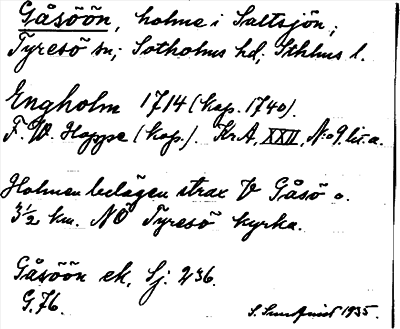 Gåsöön, holme i Saltsjön;
Tyresö sn; Sotholms hd; Sthlms l.
Engholm 1714 (kop. 1740).
F. W. Hoppe (kop.). Kr.A. XXII, N:o 9. lit. a.
Holmen belägen strax V Gåsö o.
3½ km. NÖ Tyresö kyrka.
Gåsöön ek. Sj: 236.
G. 76.
S. Sundqvist 1935.